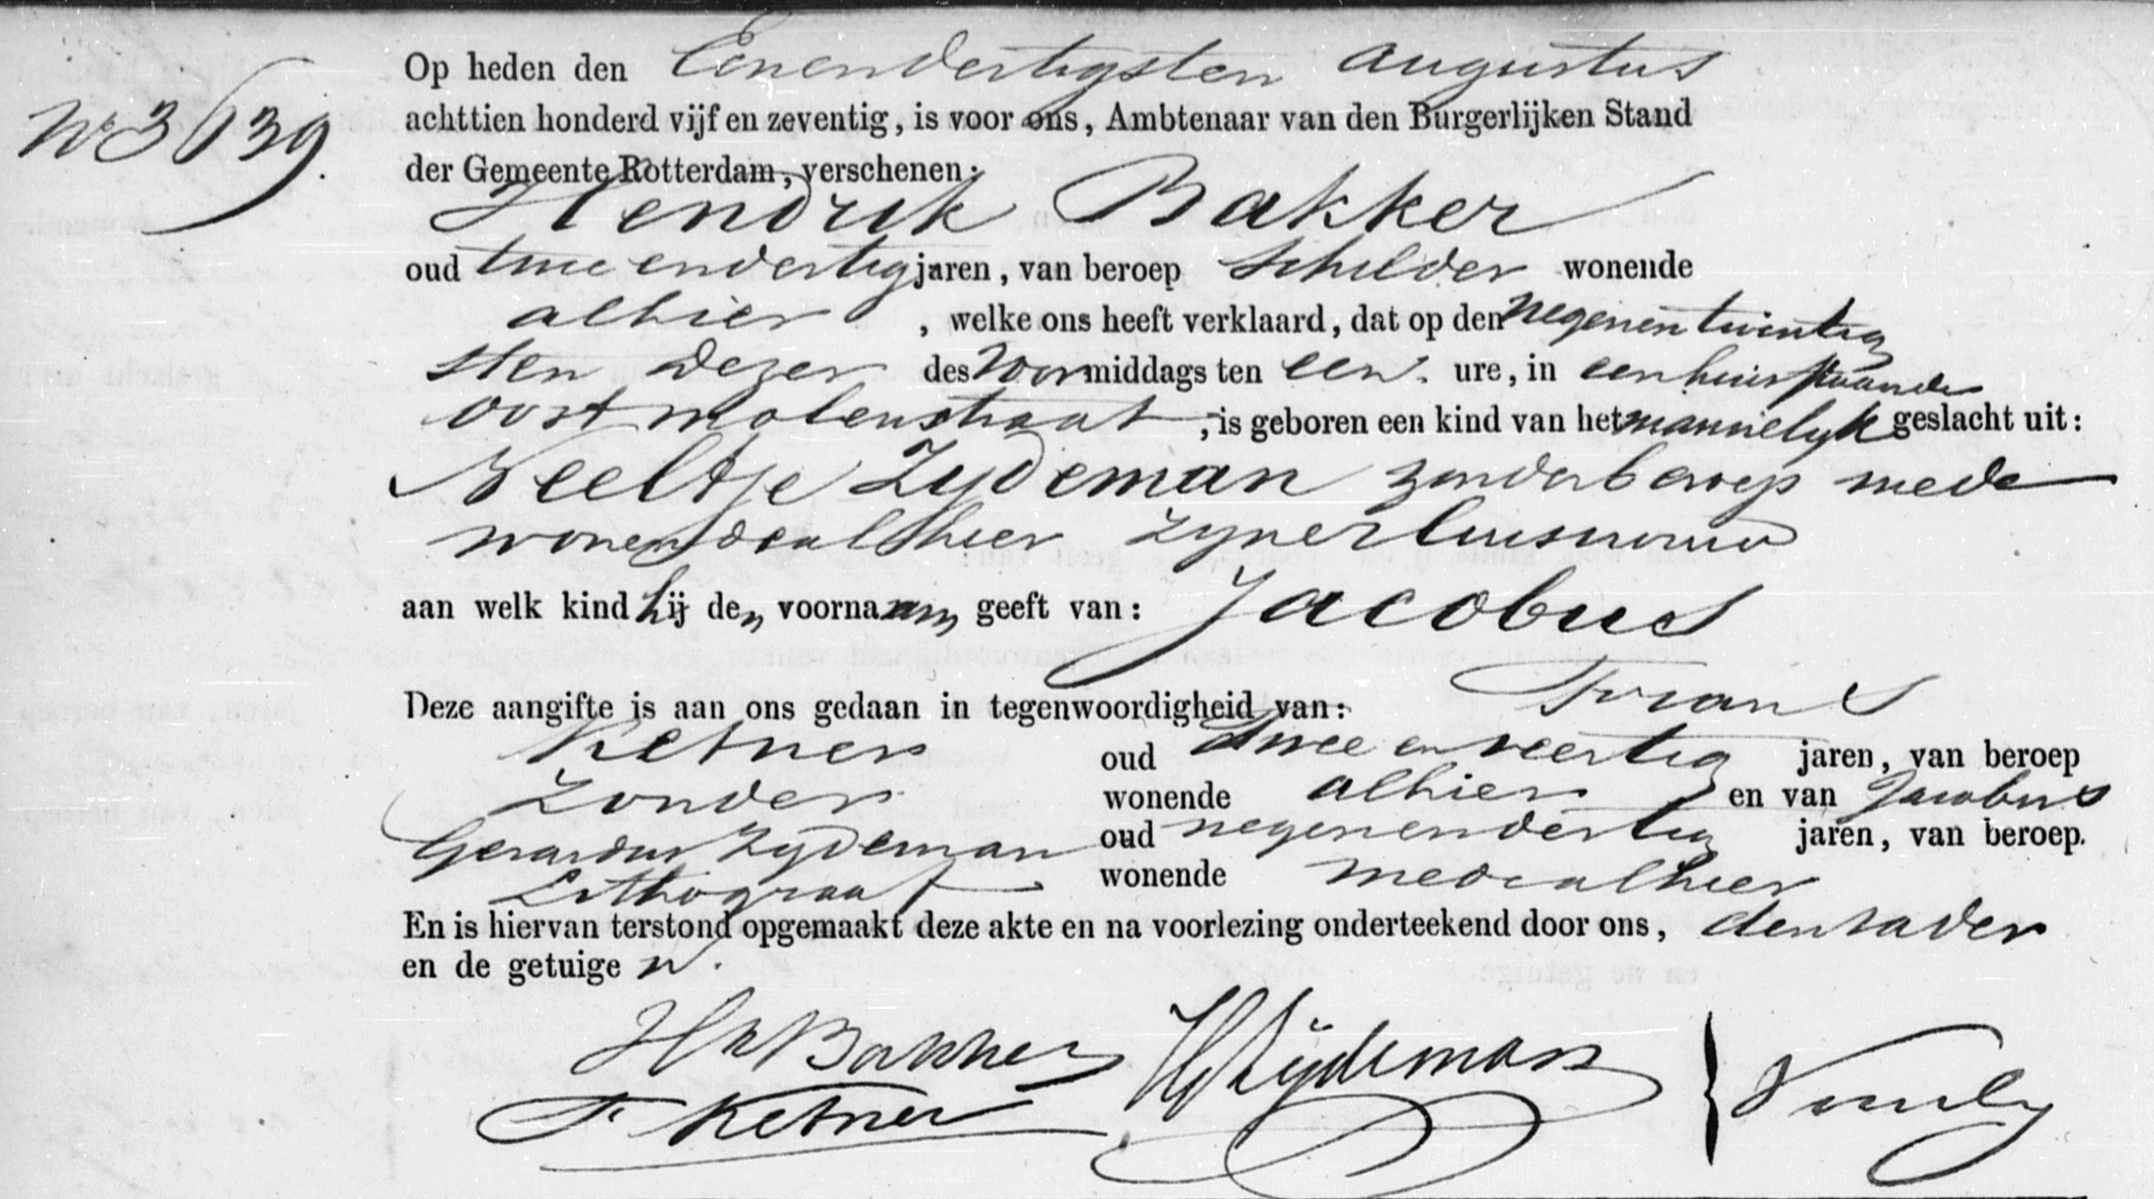 Op heden den Eenendertigsten Augustus
No 3639.
achttien honderd vijf en zeventig, is voor ons, Ambtenaar van den Burgerlijken Stand
der Gemeente Rotterdam, verschenen:
Hendrik Bakker
oud twee endertig jaren, van beroep schilder wonende
alhier, welke ons heeft verklaard, dat op den negenentwintig
sten dezer des Voormiddags ten een ure, in een huis staande
oostmolenstraat, is geboren een kind van het mannelyk geslacht uit:
Neeltje Zydeman zonder beroep mede
wonende alhier zyner huisvrouw
aan welk kind hij den voornaam geeft van: Jacobus
Deze aangifte is aan ons gedaan in tegenwoordigheid van: Frans
Ketner oud twee en veertig jaren, van beroep
Zonder wonende alhier en van Jacobus
Gerardus Zydeman oud negenendertig jaren, van beroep.
Lithograaf wonende medealhier
En is hiervan terstond opgemaakt deze akte en na voorlezing onderteekend door ons, den vader
en de getuige n.
Hk Bakker Zijdeman
F. Ketner